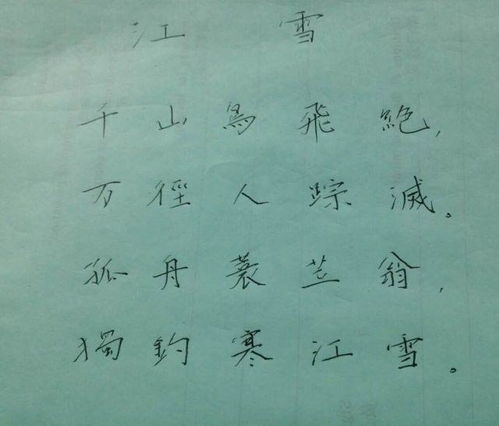 江雪
千山鳥飛絕,
万徑人踪滅。
孤舟蓑笠翁,
獨釣寒江雪。